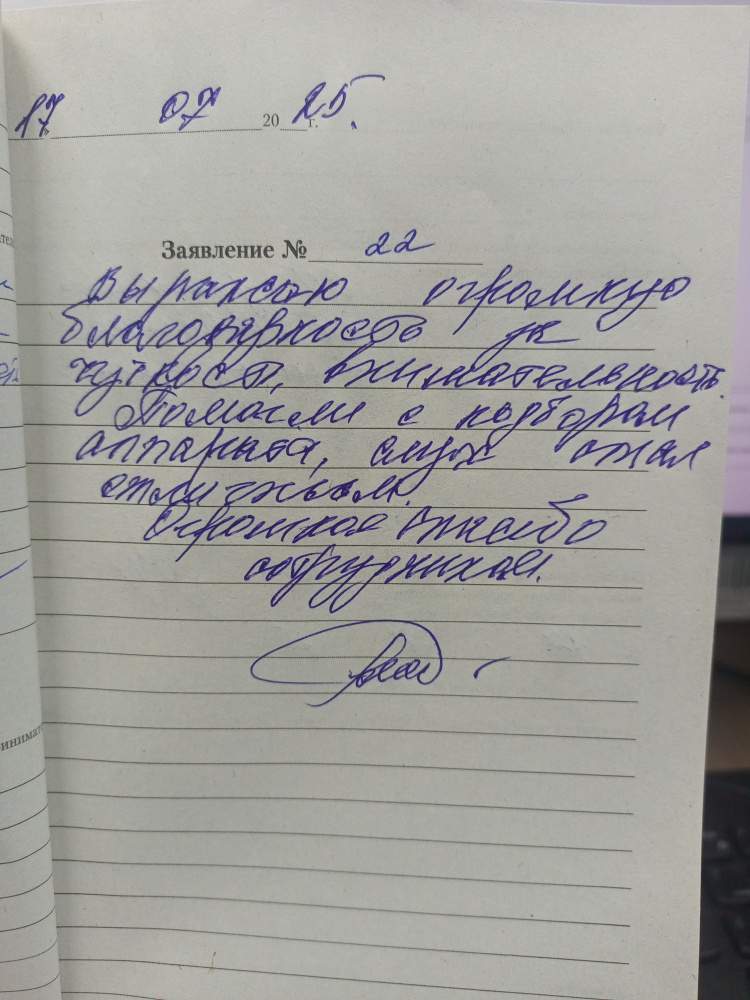 17 07 20 25 г.
Заявление № 22
Выражаю огромную
благодарность за
чуткость, внимательность.
Помогли с подбором
аппарата, слух стал
отличным.
Огромное спасибо
сотрудникам.